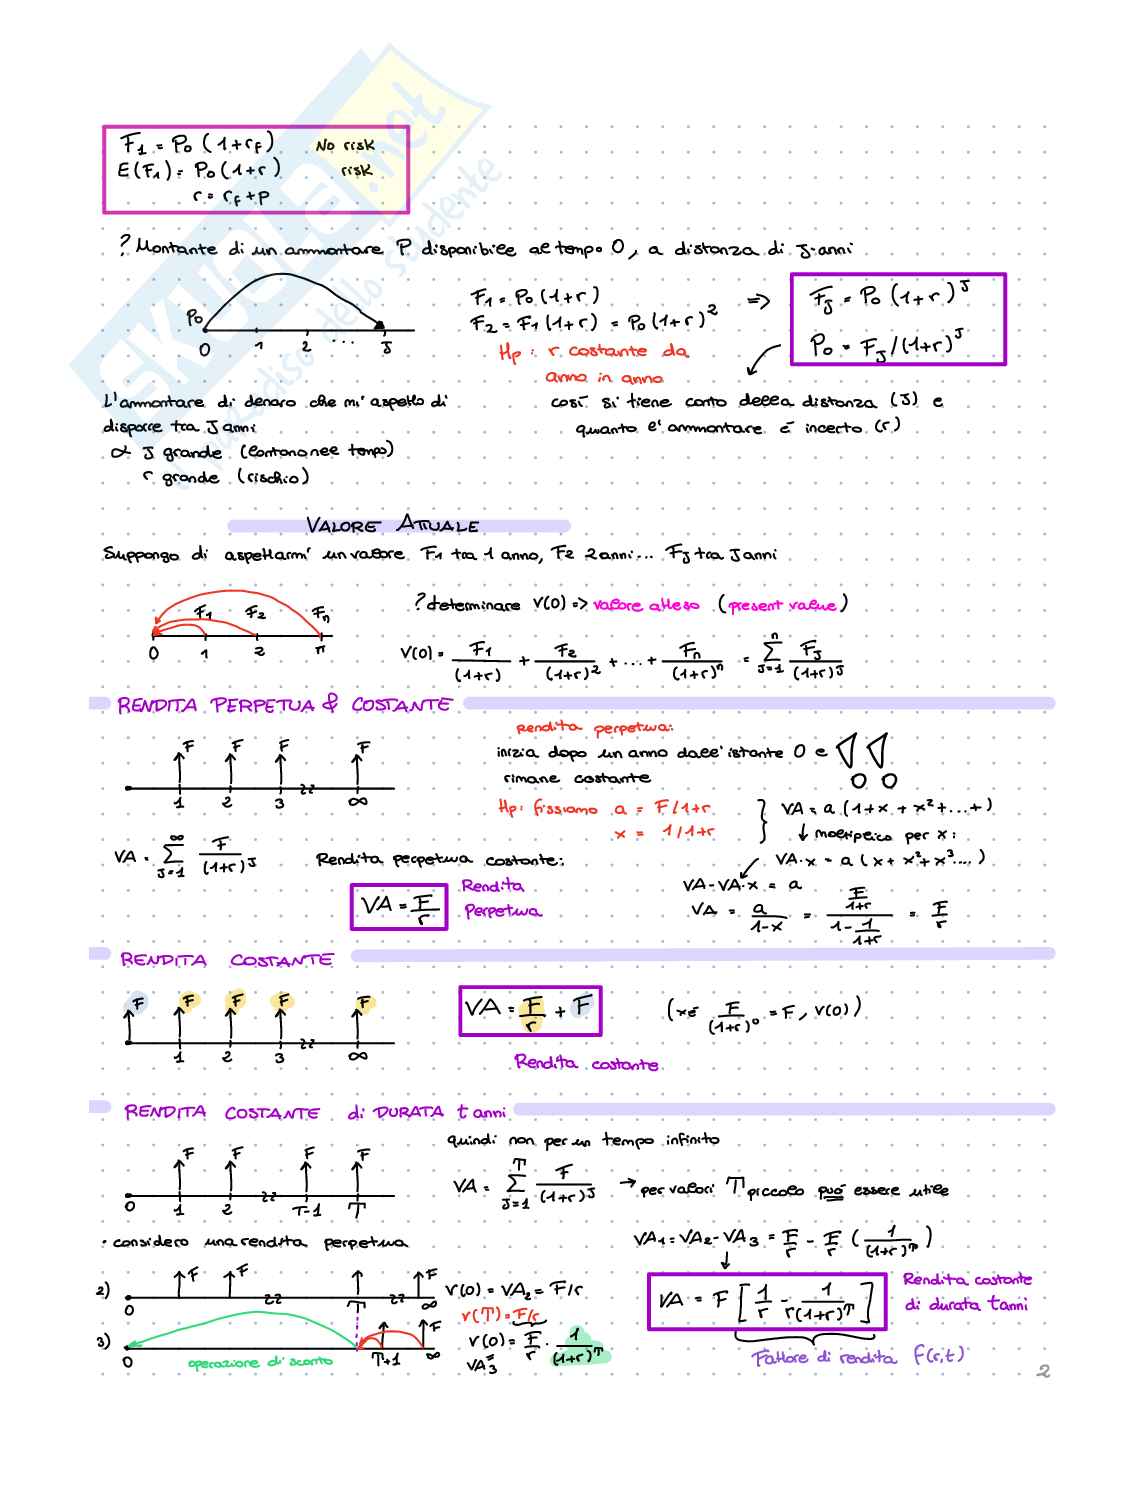 F₁ = P₀ (1+r_F) No risk
E(F₁) = P₀ (1+r) risk
r = r_F + p
? Montante di un ammontare P disponibile al tempo 0, a distanza di J-anni
P₀
0 1 2 ... J
F₁ = P₀ (1+r)
F₂ = F₁ (1+r) = P₀ (1+r)²
Hp: r costante da
anno in anno
=>
F_J = P₀ (1+r)^J
P₀ = F_J / (1+r)^J
L'ammontare di denaro che mi aspetto di
disporre tra J anni
α J grande (lontano nel tempo)
r grande (rischio)
così si tiene conto della distanza (J) e
quanto l'ammontare è incerto (r)
VALORE ATTUALE
Suppongo di aspettarmi un valore F₁ tra 1 anno, F₂ 2 anni... F_J tra J anni
F₁ F₂ F_n
0 1 2 n
? determinare V(0) => valore atteso (present value)
V(0) = F₁/(1+r) + F₂/(1+r)² + ... + F_n/(1+r)^n = Σ_{J=1}^{n} F_J/(1+r)^J
RENDITA PERPETUA & COSTANTE
F F F F
1 2 3 ∞
rendita perpetua:
inizia dopo un anno dall'istante 0 e !!
rimane costante
Hp: fissiamo a = F/1+r
x = 1/1+r
VA = a (1+x+x²+...+)
↓ moltiplico per x:
VA·x = a (x+x²+x³...)
VA-VA·x = a
VA = a/(1-x) = (F/(1+r))/(1-1/(1+r)) = F/r
VA = Σ_{J=1}^{∞} F/(1+r)^J
Rendita perpetua costante:
VA = F/r
Rendita
Perpetua
RENDITA COSTANTE
F F F F F
1 2 3 ∞
VA = F/r + F
(xé F/(1+r)⁰ = F, V(0))
Rendita costante
RENDITA COSTANTE di DURATA t anni
F F F F
0 1 2 T-1 T
quindi non per un tempo infinito
VA = Σ_{J=1}^{T} F/(1+r)^J → per valori T piccolo può essere utile
· considero una rendita perpetua
2) F F F
0 T ∞
V(0) = VA₂ = F/r
3) F
0 T+1 ∞
operazione di sconto
V(T) = F/r
V(0) = F/r · 1/(1+r)^T
=
VA₃
VA₁ = VA₂ - VA₃ = F/r - F/r (1/(1+r)^T)
↓
VA = F [1/r - 1/(r(1+r)^T)]
Rendita costante
di durata t anni
Fattore di rendita f(r,t)
2
SKUOLA.net
il paradiso dello studente